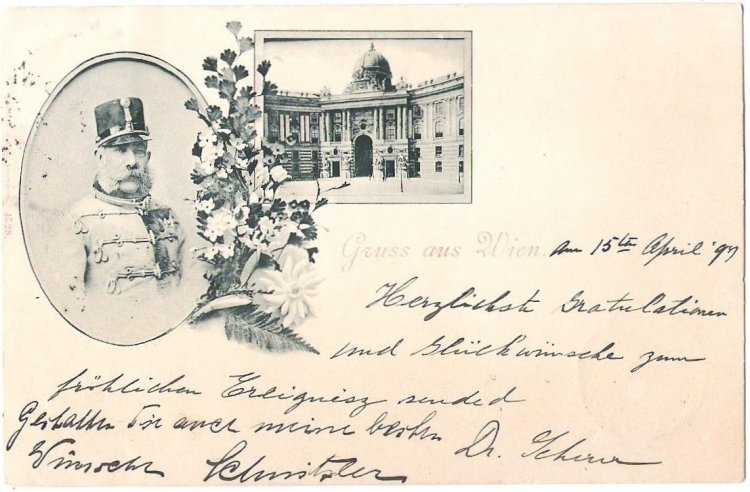 Gruss aus Wien. am 15ten April 97
Herzlichste Gratulationen
und Glückwünsche zum
fröhlichen Ereignisz sended
Gestatten Sie auch meine besten Dr. Scherer
Wünsche Schnitzler